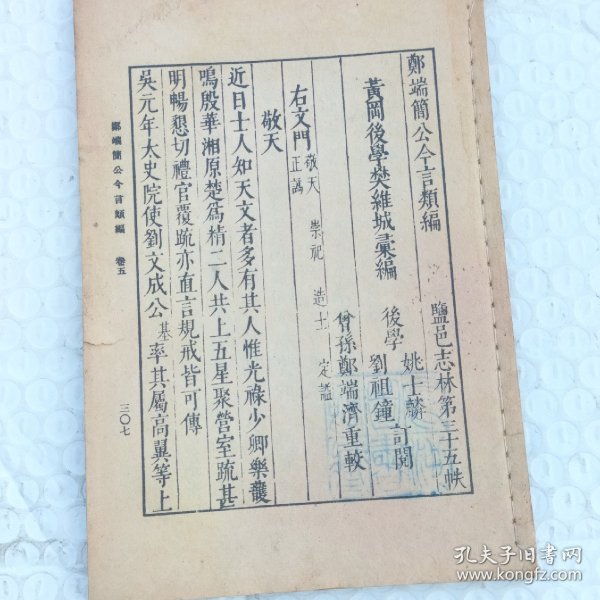 鹽邑志林第三十五帙
鄭端簡公今言類編
黃岡後學樊維城彙編
後學
姚士麟
劉祖鐘
訂閱
曾孫鄭端濟重較
右文門
敬天 崇祀 造士 定謚
正譌
敬天
近日士人知天文者多有其人惟光祿少卿樂頀
鳴殷華湘原楚爲精二人共上五星聚營室疏甚
明暢懇切禮官覆疏亦直言規戒皆可傳
吳元年太史院使劉文成公基率其屬高翼等上
鄭端簡公今言類編 卷五
三〇七
孔夫子旧书网
www.kongfz.com